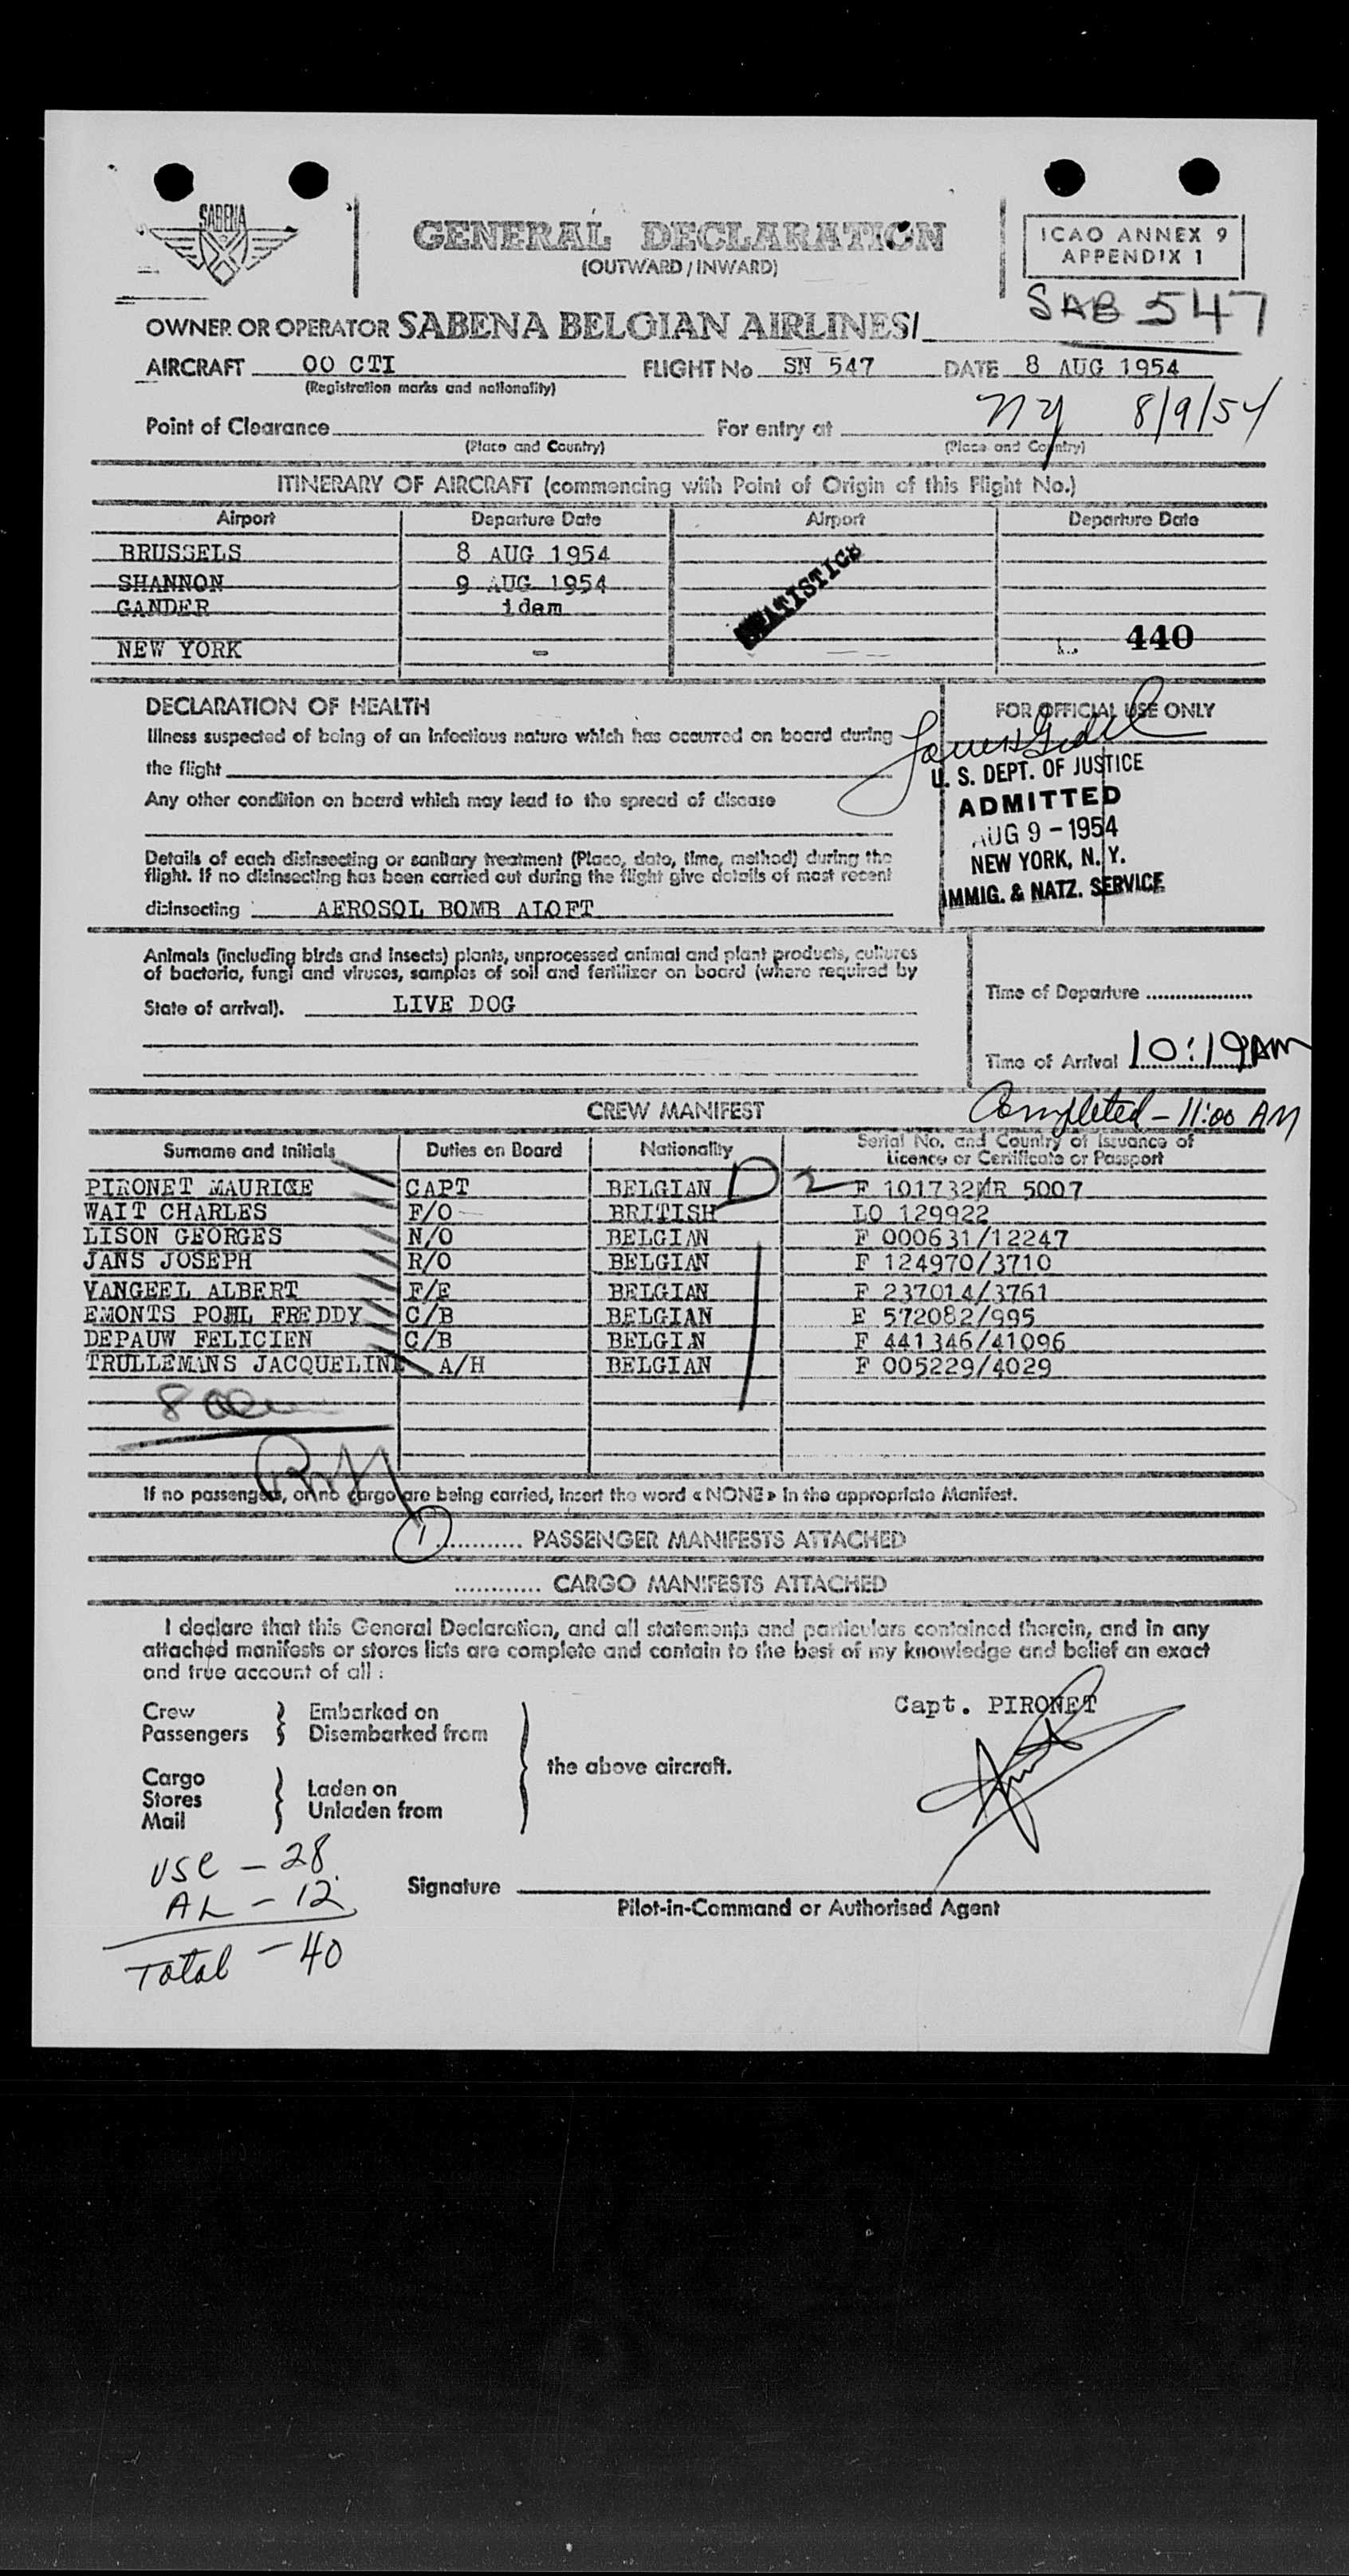 SABENA
GENERAL DECLARATION
(OUTWARD / INWARD)
ICAO ANNEX 9
APPENDIX 1
SAB 547
OWNER OR OPERATOR SABENA BELGIAN AIRLINES/
AIRCRAFT OO CTI FLIGHT No SN 547 DATE 8 AUG 1954
(Registration marks and nationality)
Point of Clearance For entry at NY 8/9/54
(Place and Country) (Place and Country)
ITINERARY OF AIRCRAFT (commencing with Point of Origin of this Flight No.)
Airport Departure Date Airport Departure Date
BRUSSELS 8 AUG 1954
SHANNON 9 AUG 1954
GANDER idem
STATISTICS
NEW YORK - 440
DECLARATION OF HEALTH
FOR OFFICIAL USE ONLY
Illness suspected of being of an infectious nature which has occurred on board during
the flight
U. S. DEPT. OF JUSTICE
ADMITTED
AUG 9 - 1954
NEW YORK, N. Y.
IMMIG. & NATZ. SERVICE
Any other condition on board which may lead to the spread of disease
Details of each disinsecting or sanitary treatment (Place, date, time, method) during the
flight. If no disinsecting has been carried out during the flight give details of most recent
disinsecting AEROSOL BOMB ALOFT
Animals (including birds and insects) plants, unprocessed animal and plant products, cultures
of bacteria, fungi and viruses, samples of soil and fertilizer on board (where required by
State of arrival). LIVE DOG
Time of Departure
Time of Arrival 10:19 AM
Completed - 11:00 AM
CREW MANIFEST
Surname and Initials Duties on Board Nationality Serial No. and Country of Issuance of
Licence or Certificate or Passport
PIRONET MAURICE CAPT BELGIAN D 2 F 101732/MR 5007
WAIT CHARLES F/O BRITISH LO 129922
LISON GEORGES N/O BELGIAN F 000631/12247
JANS JOSEPH R/O BELGIAN F 124970/3710
VANGEEL ALBERT F/E BELGIAN F 237014/3761
EMONTS POHL FREDDY C/B BELGIAN E 572082/995
DEPAUW FELICIEN C/B BELGIAN F 441346/41096
TRULLEMANS JACQUELINE A/H BELGIAN F 005229/4029
8
If no passengers, or no cargo are being carried, insert the word « NONE » in the appropriate Manifest.
1 ............ PASSENGER MANIFESTS ATTACHED
............ CARGO MANIFESTS ATTACHED
I declare that this General Declaration, and all statements and particulars contained therein, and in any
attached manifests or stores lists are complete and contain to the best of my knowledge and belief an exact
and true account of all :
Crew Embarked on
Passengers Disembarked from
the above aircraft.
Cargo
Stores Laden on
Mail Unladen from
Capt. PIRONET
USC - 28
AL - 12
Total - 40
Signature
Pilot-in-Command or Authorised Agent